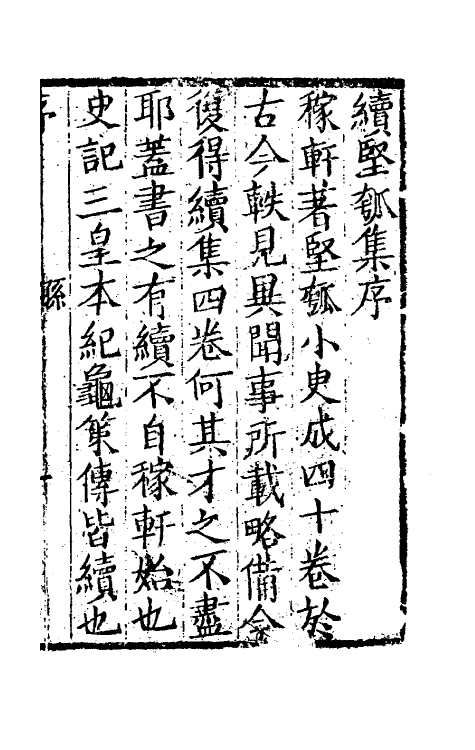 續堅瓠集序
稼軒著堅瓠小史成四十卷於
古今軼見異聞事所載略備今
復得續集四卷何其才之不盡
耶蓋書之有續不自稼軒始也
史記三皇本紀龜筴傳皆續也
序